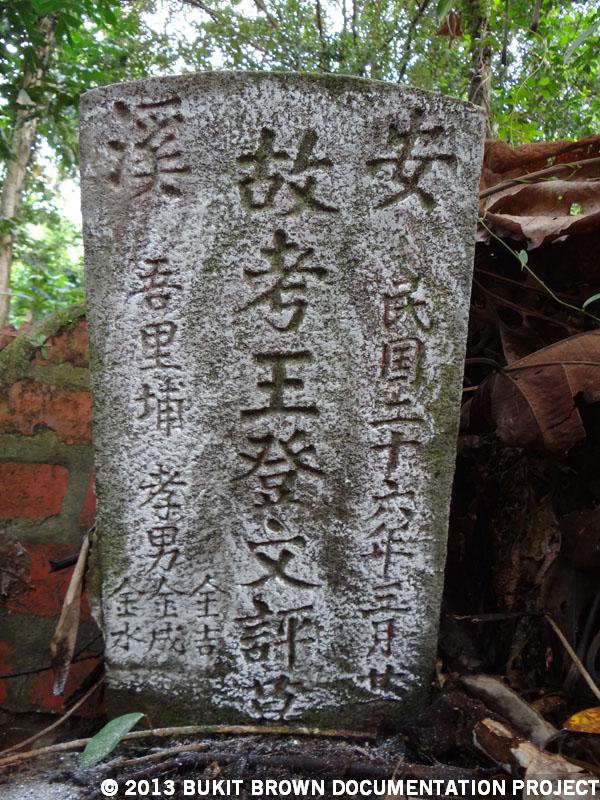 安
民国三十六年三月廿
故考王登文評
溪
吾里埔
孝男
金吉
金成
金水
© 2013 BUKIT BROWN DOCUMENTATION PROJECT